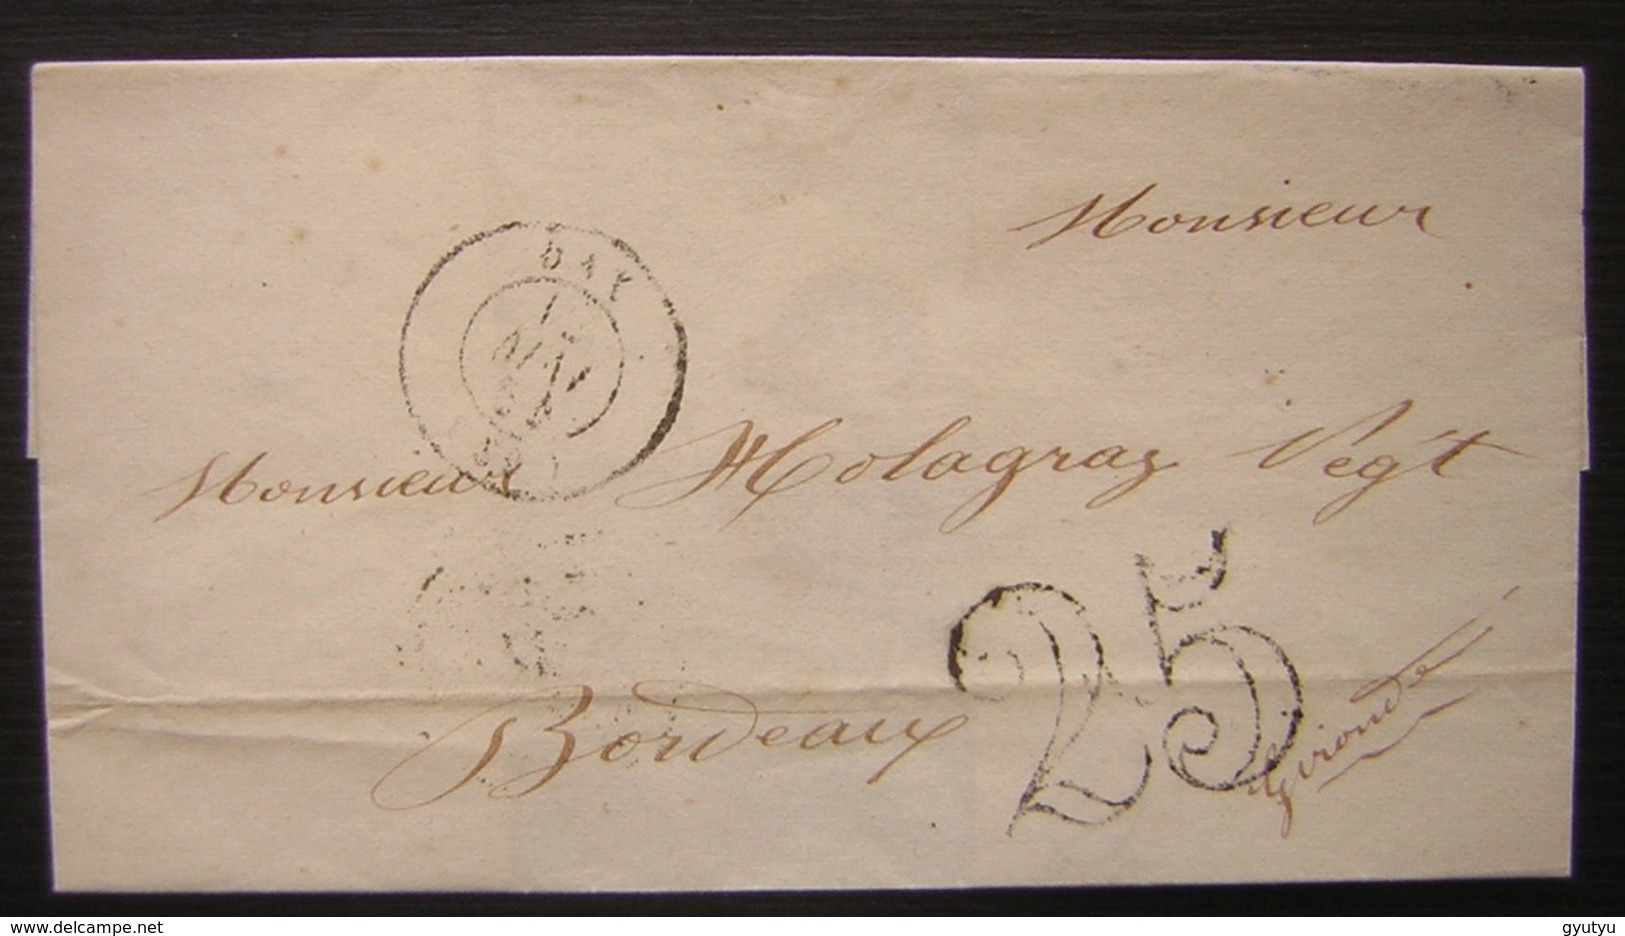 Monsieur
DAX
Monsieur Molagraz Négt
Bordeaux
25
Gironde
delcampe.net
gyutyu